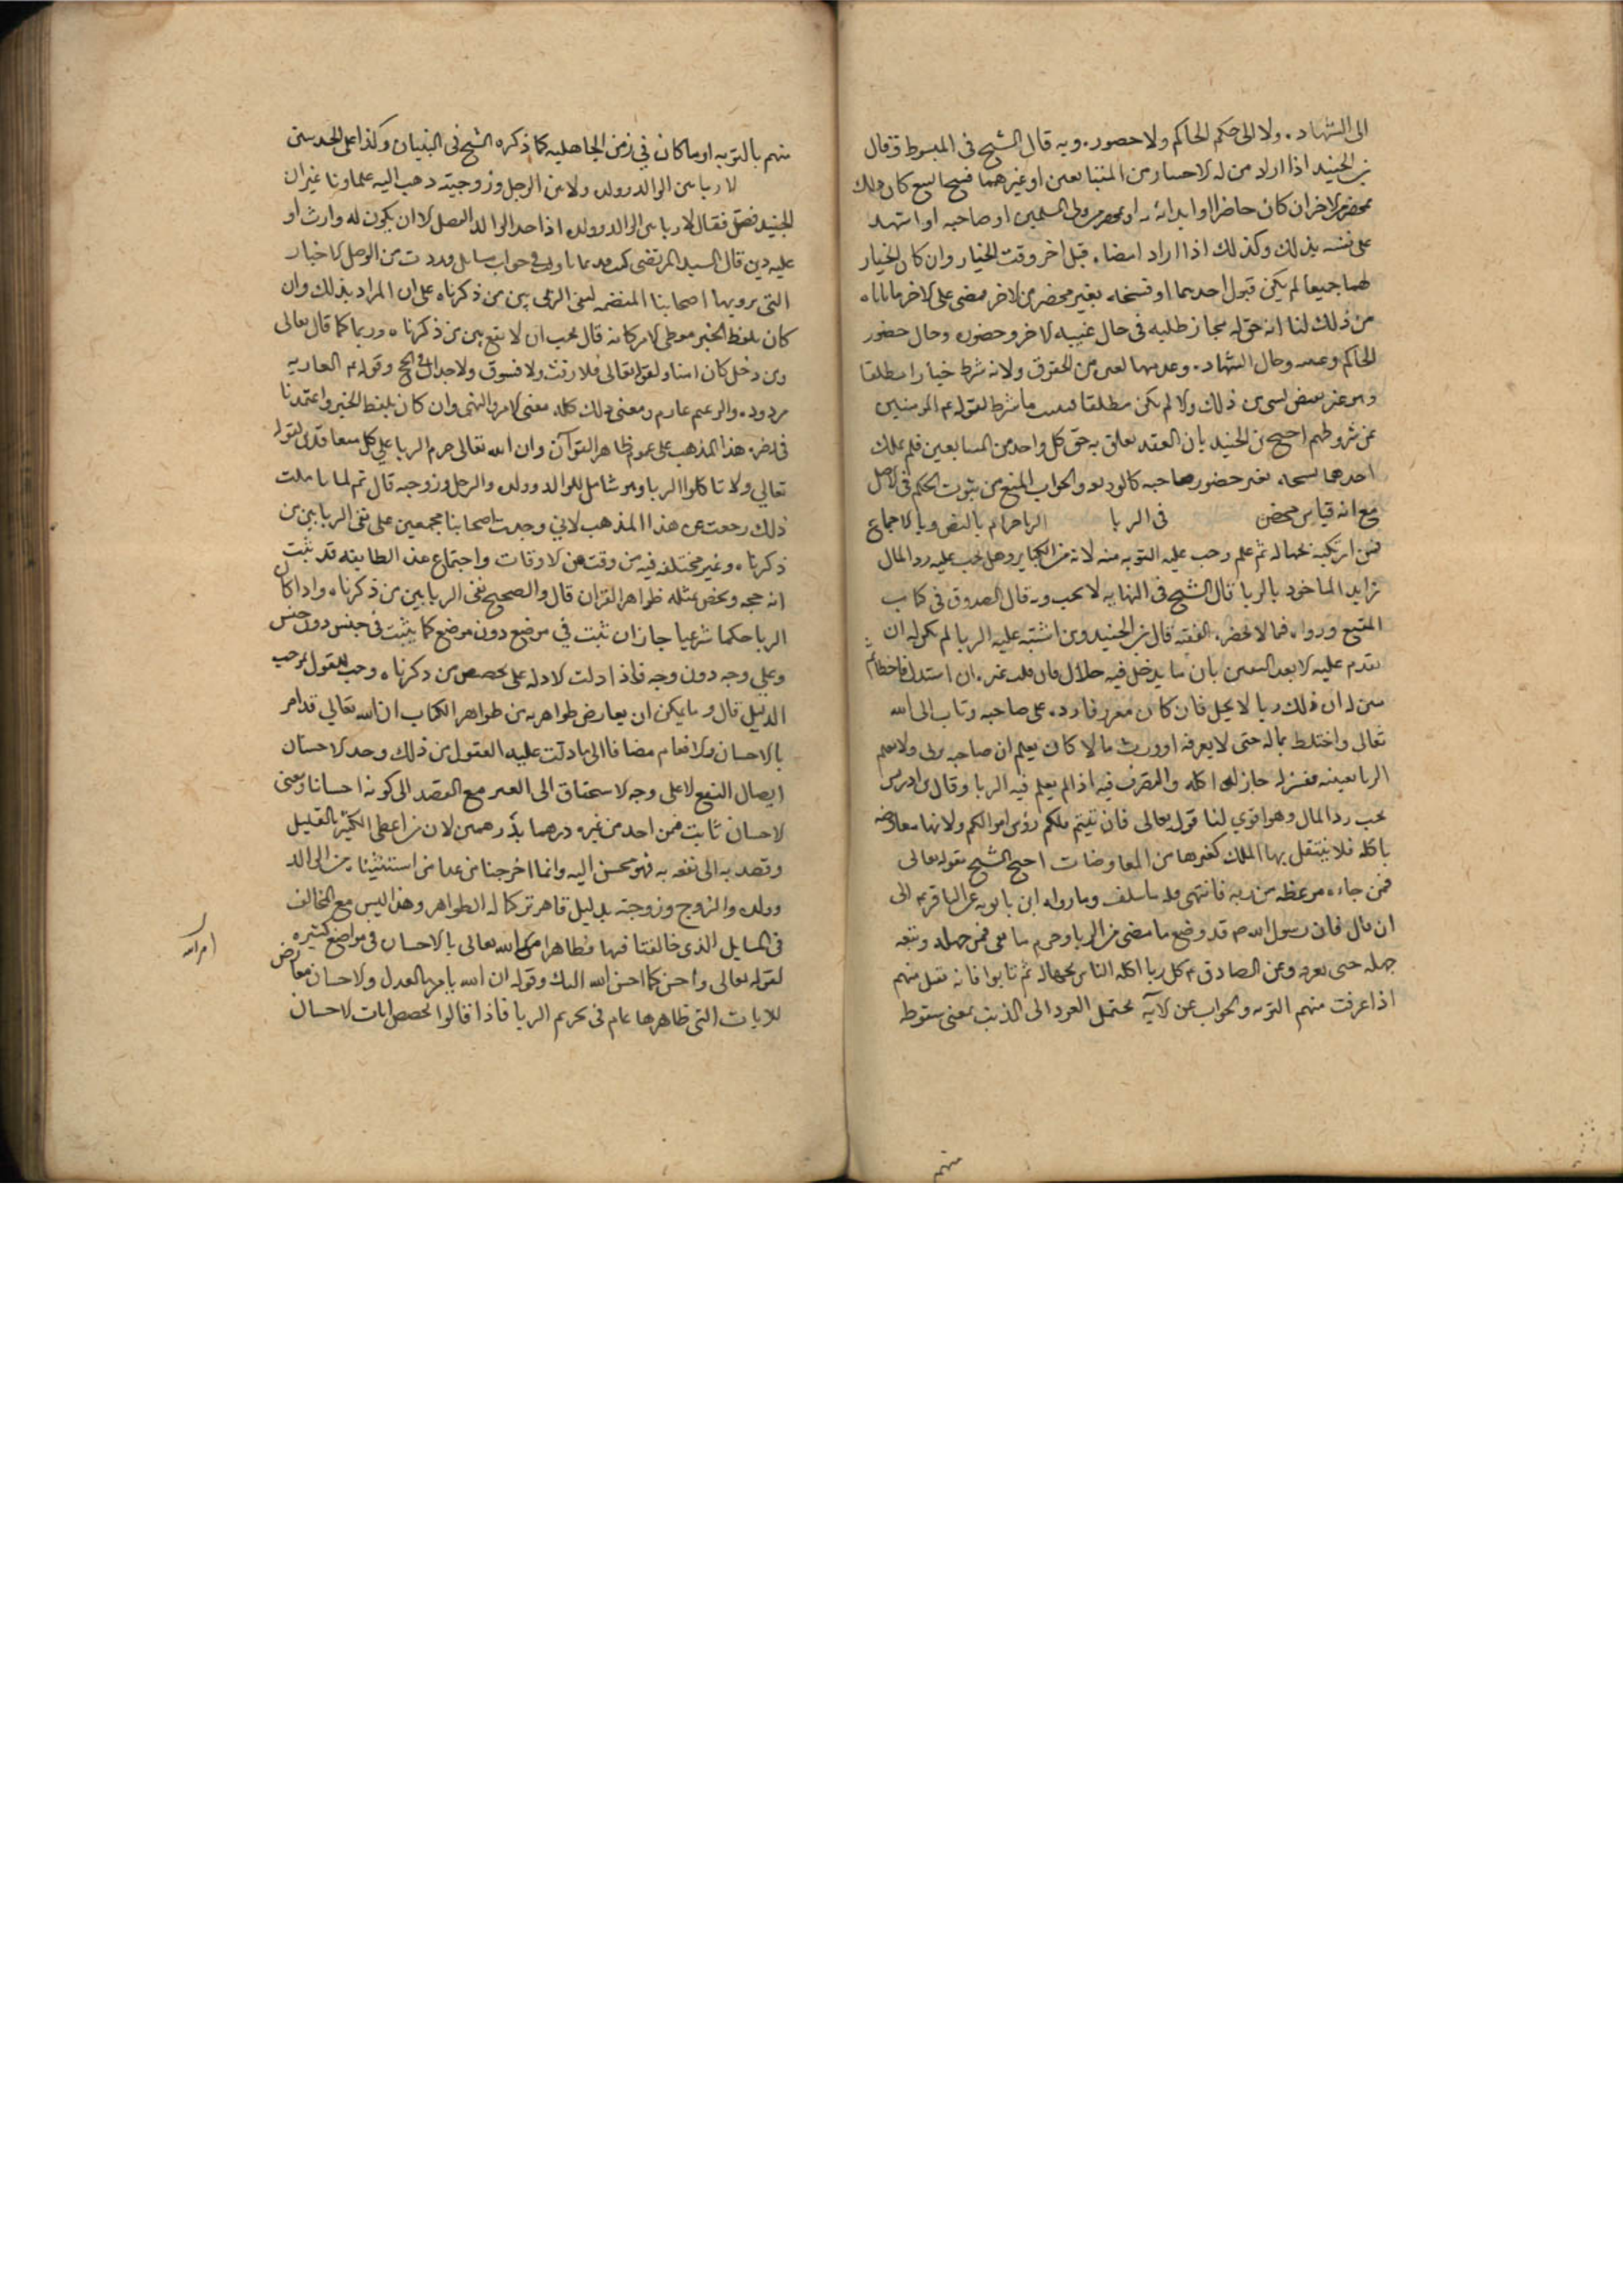 الى الشهادة ولا الى حكم الحاكم ولا حضوره وبه قال الشيخ فى المبسوط وقال
بن الجنيد اذا اراد من له الاختيار من المتبايعين او غيرهما فسخ البيع كان ذلك
بمحضر الاخر ان كان حاضرا او بمحضر من المسلمين او صاحبه او اشهد
على نفسه بذلك وكذلك اذا اراد امضاه قبل اخر وقت الخيار وان كان الخيار
لهما جميعا لم يكن قبول احدهما او فسخه بغير محضر من الاخر ممضى على الاخر ما اباه
من ذلك لنا انه حق له فجاز طلبه فى حال غيبه الاخر وحضوره وحال حضور
الحاكم وعدمه وحال الشهاده وعدمها لغيره من الحقوق ولانه شرط خيارا مطلقا
ذلك ولا لم يكن مطلقا ما شرط لقوله عم المومنين
عند شروطهم احتج بن الجنيد بان العقد تعلق به حق كل واحد من المتبايعين فلم يملك
احدهما فسخه بغير حضور صاحبه كالوديعه والجواب المنع من ثبوت الحكم فى الاصل
مع انه قياس محض فى الربا الربا حرام بالنص وبالاجماع
فمن ارتكبه بجهاله ثم علم وجب عليه التوبه منه لانه من الكبائر وهل يجب عليه رد المال
الزايد الماخوذ بالربا قال الشيخ فى النهايه لا يجب وبه قال الصدوق فى كتاب
المقنع ورواه فى من لا يحضره الفقيه قال بن الجنيد ومن اشتبه عليه الربا لم يكن له ان
يقدم عليه الا بعد اليقين بان ما يدخل فيه حلال فان قلد غيره او استدل فاخطا ثم
تبين له ان ذلك ربا لا يحل فان كان معروفا رده على صاحبه وتاب الى الله
تعالى واختلط بماله حتى لا يعرفه او ورث مالا كان يعلم ان صاحبه يربى ولا يعلم
الربا بعينه فيعزله جاز له اكله والتصرف فيه اذا لم يعلم فيه الربا وقال بن ادريس
يجب رد المال وهو اقوي لنا قوله تعالى فان تبتم فلكم رؤس اموالكم ولانها معاوضه
باطله فلا ينتقل بها الملك كغيرها من المعاوضات احتج الشيخ بقوله تعالى
فمن جاءه موعظه من ربه فانتهى فله ما سلف وما رواه ابن بابويه عن الباقر عم الى
ان قال فان رسول الله ص قد وضع ما مضى من الربا وحرم ما بقى فمن جهله وسعه
جهله حتى يعرفه وعن الصادق ع كل ربا اكله الناس بجهاله ثم تابوا فانه يقبل منهم
اذا عرفت منهم التوبه والجواب عن الآيه يحتمل العود الى الذنب بمعنى سقوطه
منهم
منهم بالتوبه او ما كان في زمن الجاهليه كما ذكره الشيخ فى التبيان وكذا على الحديثين
لا ربا بين الوالد وولده ولا بين الرجل وزوجته ذهب اليه علماونا غير ان
الجنيد فصل فقال لا ربا بين الوالد وولده اذا اخذ الوالد الفضل الا ان يكون له وارث او
عليه دين قال السيد المرتضى كنت قديما تاولت فى جواب مسايل وردت من الموصل الاخبار
التى يرويها اصحابنا المتضمنه لنفى الربا بين من ذكرناه على ان المراد بذلك وان
كان بلفظ الخبر معنى الامر كانه قال يجب ان لا يقع بين من ذكرناه وربا كما قال تعالى
ومن دخله كان امنا ولقوله تعالى فلا رفث ولا فسوق ولا جدال فى الحج وقوله عم العاريه
مردوده والزعيم غارم ومعنى ذلك كله معنى الامر والنهى وان كان بلفظ الخبر واعتمدنا
فى نصره هذا المذهب على عموم ظاهر القرآن وان الله تعالى حرم الربا على كل متعاقدين لقوله
تعالي ولا تاكلوا الربا وهو شامل للوالد وولده والرجل وزوجه قال ثم لما تاملت
ذلك رجعت عن هذا المذهب لاني وجدت اصحابنا مجمعين على نفى الربا بين من
ذكرناه وغير مختلفه فيه من وقت من الاوقات واجماع هذه الطايفه قد ثبت
انه حجه ويخص بمثله ظواهر القران قال والصحيح نفى الربا بين من ذكرناه واذا كان
الربا حكما شرعيا جاز ان يثبت في موضع دون موضع كما يثبت فى جنس دون جنس
وعلى وجه دون وجه فاذا دلت الادله على تخصيص من ذكرناه وجب القول بموجب
الدليل قال ومما يمكن ان يعارض ظواهره من ظواهر الكتاب ان الله تعالي قد امر
بالاحسان والانعام مضافا الى ما دلت عليه العقول من ذلك وحد الاحسان
ايصال النفع لا على وجه الاستحقاق الى الغير مع القصد الى كونه احسانا ومعنى
الاحسان ثابت فمن اخذ من غيره درهما بدرهمين لان من اعطى الكثير بالقليل
وقصد به الى نفعه به فهو محسن اليه وانما اخرجنا من عدا من استثنيناه من الوالد
وولده والزوج وزوجته بدليل قاهر تركنا له الظواهر وهذا ليس مع المخالف
فى المسايل الذى خالفنا فيها فظاهر امر الله تعالى بالاحسان فى مواضع كثيره
لقوله تعالى واحسن كما احسن الله اليك وقوله ان الله يامر بالعدل والاحسان معارض
للايات التى ظاهرها عام فى تحريم الربا فاذا قالوا نخصص ايات الاحسان
امر الله